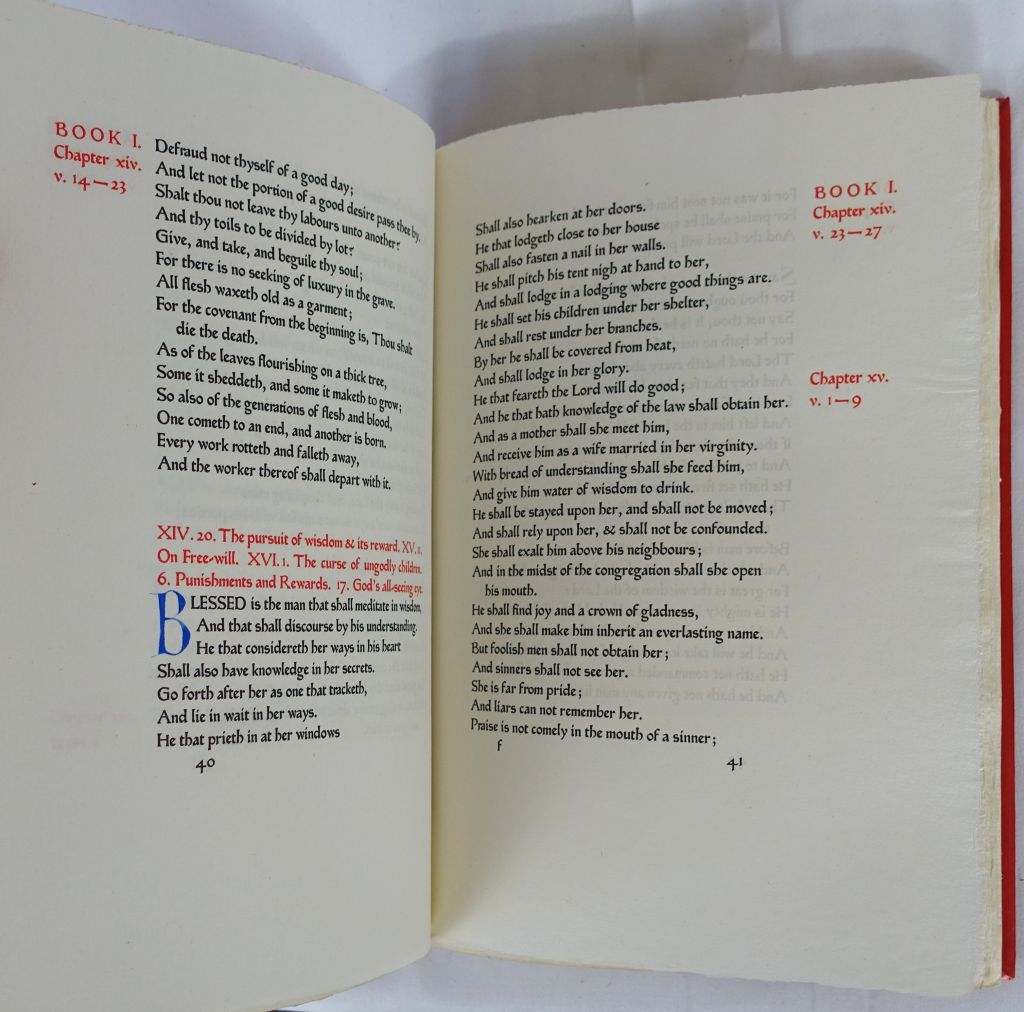 BOOK I.
Chapter xiv.
v. 14—23
Defraud not thyself of a good day;
And let not the portion of a good desire pass thee by.
Shalt thou not leave thy labours unto another?
And thy toils to be divided by lot?
Give, and take, and beguile thy soul;
For there is no seeking of luxury in the grave.
All flesh waxeth old as a garment;
For the covenant from the beginning is, Thou shalt
die the death.
As of the leaves flourishing on a thick tree,
Some it sheddeth, and some it maketh to grow;
So also of the generations of flesh and blood,
One cometh to an end, and another is born.
Every work rotteth and falleth away,
And the worker thereof shall depart with it.
XIV. 20. The pursuit of wisdom & its reward. XV. 11.
On Free-will. XVI. 1. The curse of ungodly children.
6. Punishments and Rewards. 17. God's all-seeing eye.
BLESSED is the man that shall meditate in wisdom,
And that shall discourse by his understanding.
He that considereth her ways in his heart
Shall also have knowledge in her secrets.
Go forth after her as one that tracketh,
And lie in wait in her ways.
He that prieth in at her windows
40
BOOK I.
Chapter xiv.
v. 23—27
Shall also hearken at her doors.
He that lodgeth close to her house
Shall also fasten a nail in her walls.
He shall pitch his tent nigh at hand to her,
And shall lodge in a lodging where good things are.
He shall set his children under her shelter,
And shall rest under her branches.
By her he shall be covered from heat,
And shall lodge in her glory.
Chapter xv.
v. 1—9
He that feareth the Lord will do good;
And he that hath knowledge of the law shall obtain her.
And as a mother shall she meet him,
And receive him as a wife married in her virginity.
With bread of understanding shall she feed him,
And give him water of wisdom to drink.
He shall be stayed upon her, and shall not be moved;
And shall rely upon her, & shall not be confounded.
She shall exalt him above his neighbours;
And in the midst of the congregation shall she open
his mouth.
He shall find joy and a crown of gladness,
And she shall make him inherit an everlasting name.
But foolish men shall not obtain her;
And sinners shall not see her.
She is far from pride;
And liars can not remember her.
Praise is not comely in the mouth of a sinner;
f
41